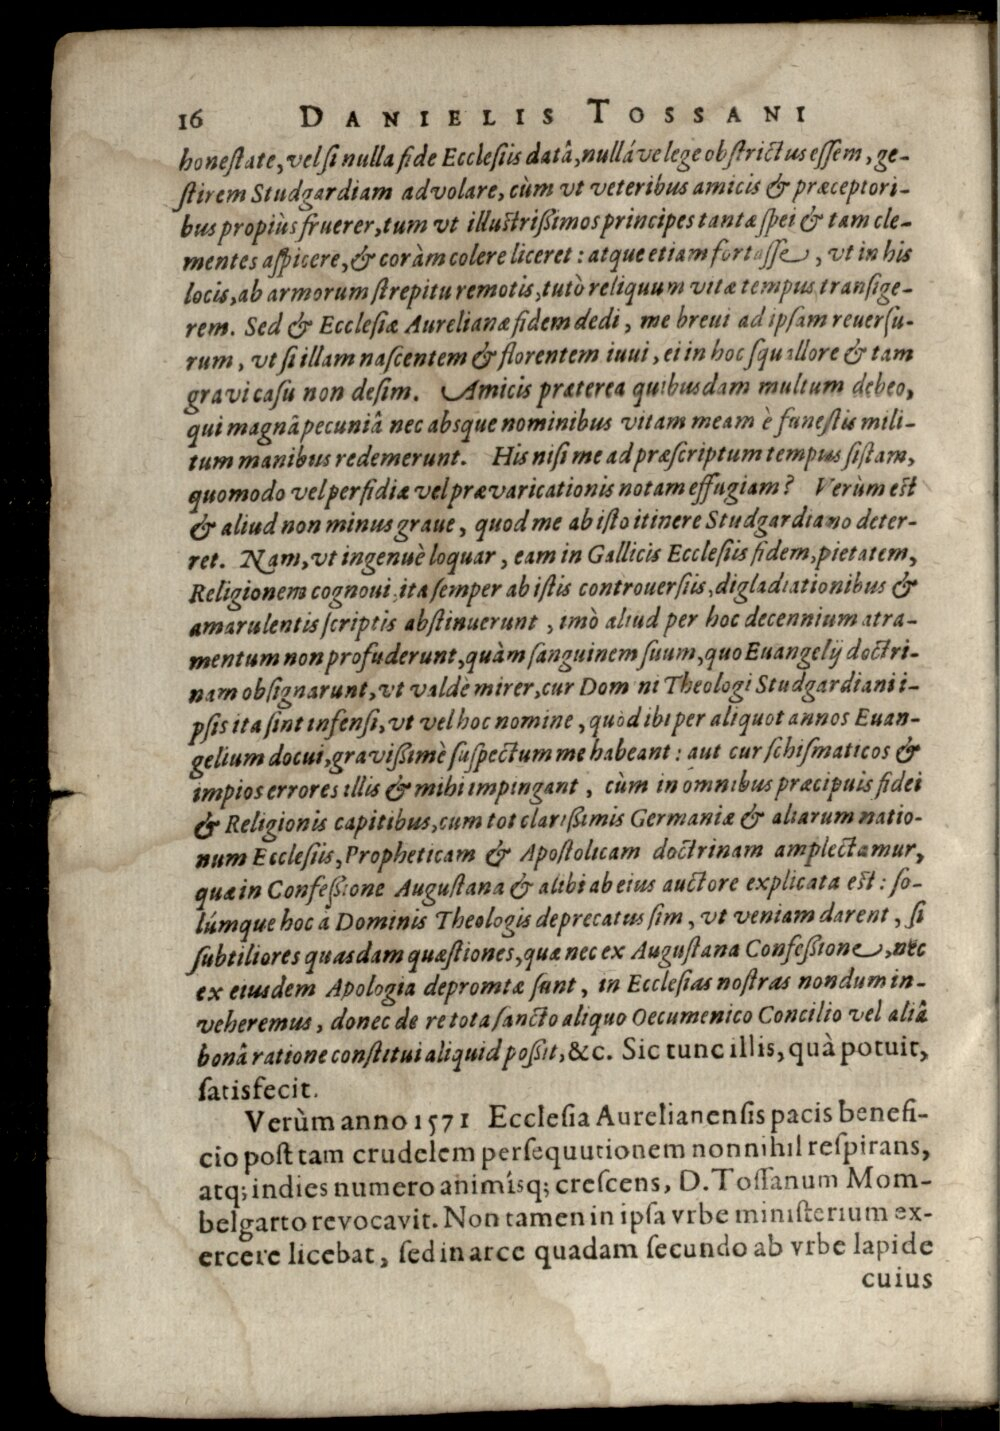 16 DANIELIS TOSSANI
honeſtate, vel ſi nulla fide Eccleſiis datâ, nulláve lege obſtrictus eſſem, ge-
ſtirem Studgardiam advolare, cùm vt veteribus amicis & præceptori-
bus propiùs fruerer, tum vt illuſtrißimos principes tantæ ſpei & tam cle-
mentes aſpicere, & coràm colere liceret: atque etiam fortaſſe, vt in his
locis, ab armorum ſtrepitu remotis, tutò reliquum vitæ tempus tranſige-
rem. Sed & Eccleſiæ Aurelianæ fidem dedi, me breui ad ipſam reuerſu-
rum, vt ſi illam naſcentem & florentem iuui, ei in hoc ſquallore & tam
gravi caſu non deſim. Amicis præterea quibusdam multum debeo,
qui magnâ pecuniâ nec absque nominibus vitam meam è funeſtis mili-
tum manibus redemerunt. His niſi me ad præſcriptum tempus ſiſtam,
quomodo vel perfidiæ vel prævaricationis notam effugiam? Verùm eſt
& aliud non minus graue, quod me ab iſto itinere Studgardiano deter-
ret. Nam, vt ingenuè loquar, eam in Gallicis Eccleſiis fidem, pietatem,
Religionem cognoui, ita ſemper ab iſtis controuerſiis, digladiationibus &
amarulentis ſcriptis abſtinuerunt, imò aliud per hoc decennium atra-
mentum non profuderunt, quàm ſanguinem ſuum, quo Euangelij doctri-
nam obſignarunt, vt valdè mirer, cur Domini Theologi Studgardiani i-
pſis ita ſint infenſi, vt vel hoc nomine, quòd ibi per aliquot annos Euan-
gelium docui, gravißimè ſuſpectum me habeant: aut cur ſchiſmaticos &
impios errores illis & mihi impingant, cùm in omnibus præcipuis fidei
& Religionis capitibus, cum tot clarißimis Germaniæ & aliarum natio-
num Eccleſiis, Propheticam & Apoſtolicam doctrinam amplectamur,
quæ in Confeßione Auguſtana & alibi ab eius auctore explicata eſt: ſo-
lúmque hoc â Dominis Theologis deprecatus ſim, vt veniam darent, ſi
ſubtiliores quasdam quæſtiones, quæ nec ex Auguſtana Confeßione, nec
ex eiusdem Apologia depromtæ ſunt, in Eccleſias noſtras nondum in-
veheremus, donec de re tota ſancto aliquo Oecumenico Concilio vel aliâ
bonâ ratione conſtitui aliquid poßit, &c. Sic tunc illis, quà potuit,
ſatisfecit.
Verùm anno 1571 Eccleſia Aurelianenſis pacis benefi-
cio poſt tam crudelem perſequutionem nonnihil reſpirans,
atq; indies numero animíſq; creſcens, D. Toſſanum Mom-
belgarto revocavit. Non tamen in ipſa vrbe miniſterium ex-
ercere licebat, ſed in arce quadam ſecundo ab vrbe lapide
cuius